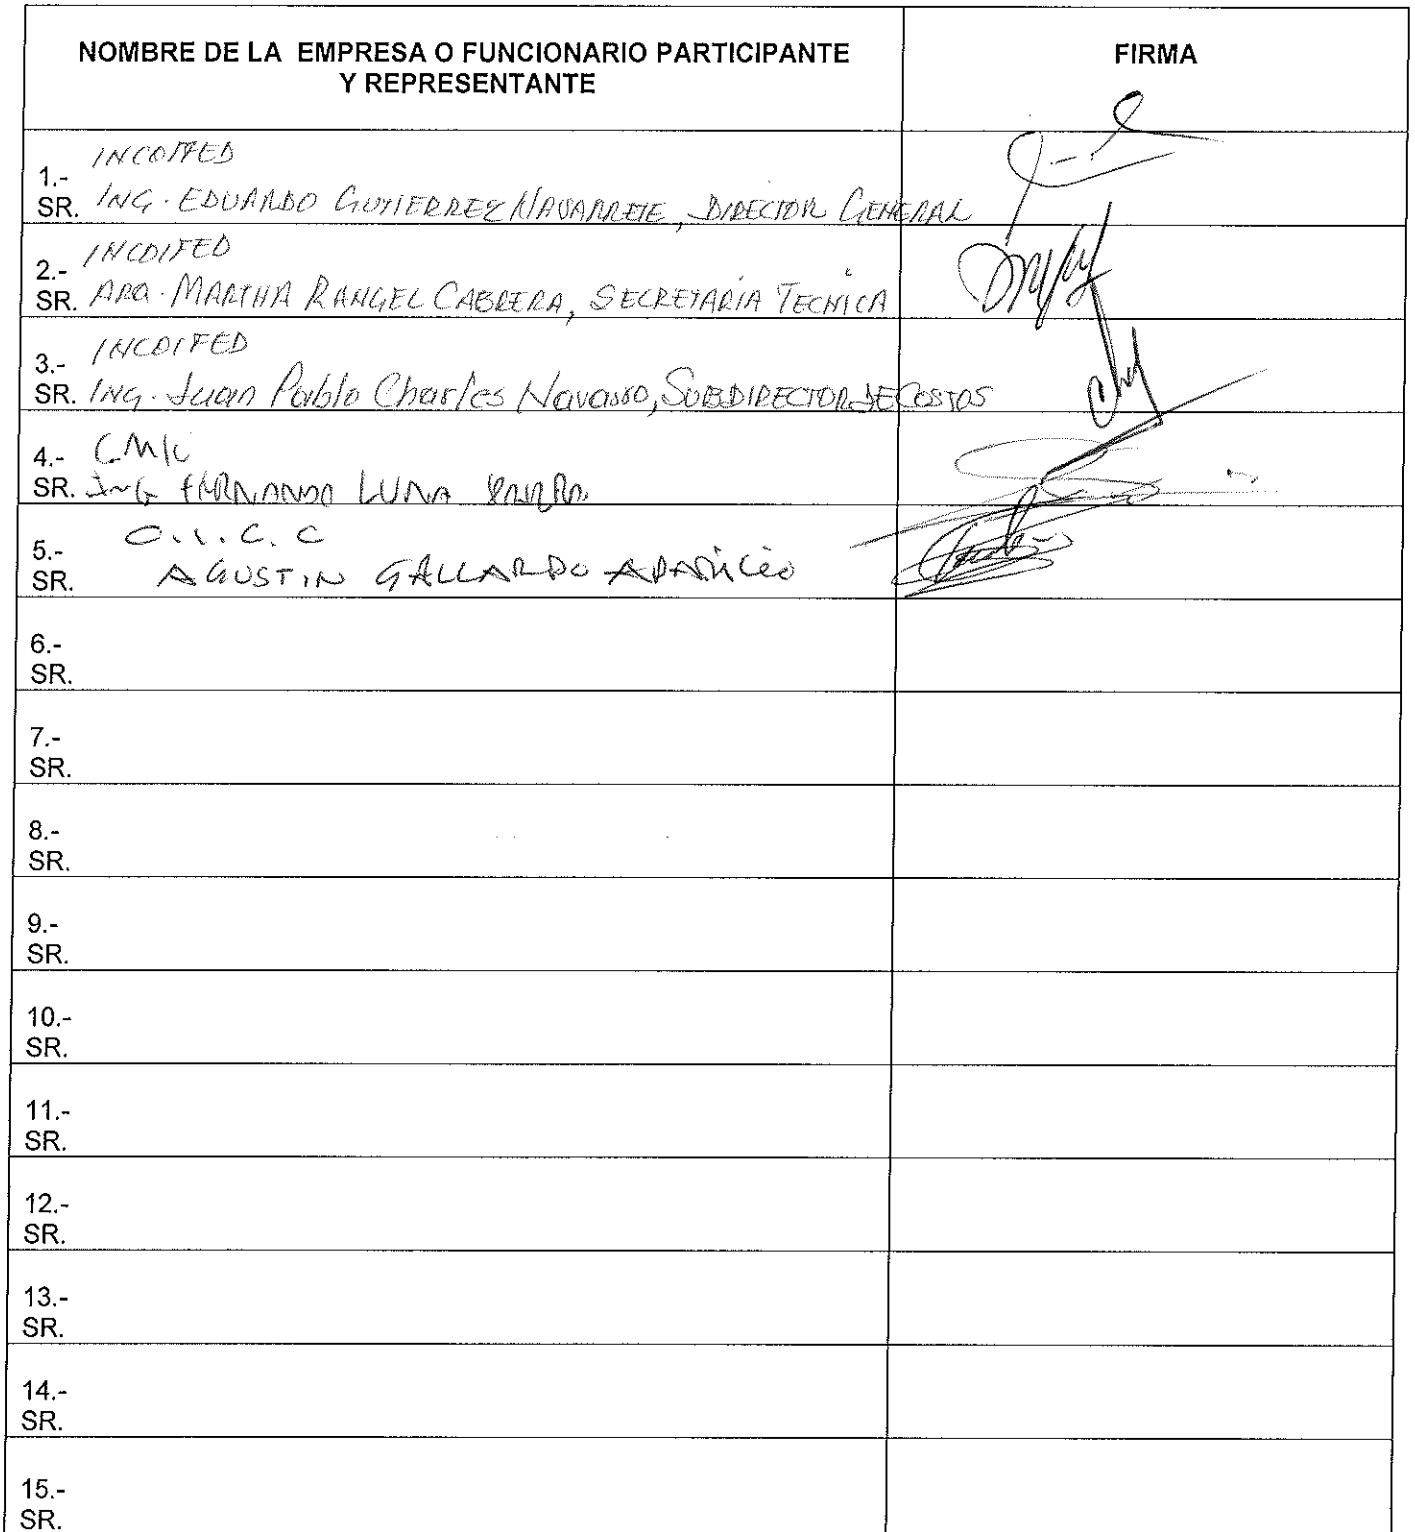 NOMBRE DE LA EMPRESA O FUNCIONARIO PARTICIPANTE
Y REPRESENTANTE
FIRMA
INCOIFED
1.-
SR. ING. EDUARDO GUTIERREZ NAVARRETE, DIRECTOR GENERAL
INCOIFED
2.-
SR. ARQ. MARTHA RANGEL CABRERA, SECRETARIA TECNICA
INCOIFED
3.-
SR. ING. Juan Pablo Charles Navarro, SUBDIRECTOR DE COSTOS
4.- CMIC
SR. ING FERNANDO LUNA
C.I.C.C
5.-
SR. AGUSTIN GALLARDO APARICIO
6.-
SR.
7.-
SR.
8.-
SR.
9.-
SR.
10.-
SR.
11.-
SR.
12.-
SR.
13.-
SR.
14.-
SR.
15.-
SR.